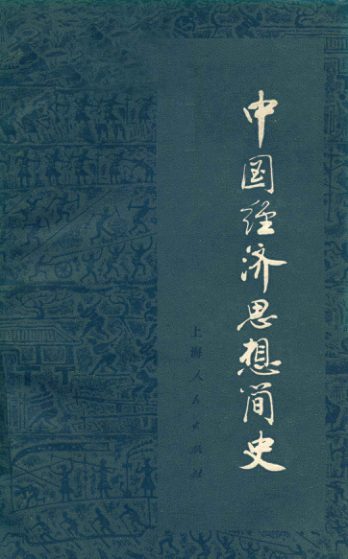 中国经济思想简史
上海人民出版社